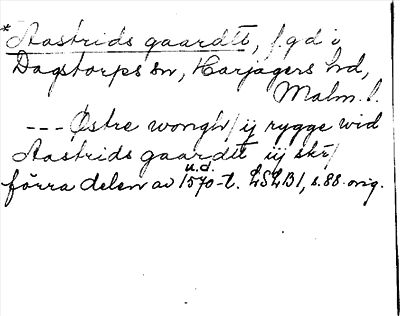 *Aastrids gaardtt, f.g.d i
Dagstorps sn, Harjagers hd,
Malm. l.
--- Østre wongh/ ij rygge wid
Aastrids gaardtt iij skr/
u.d.
förra delen av 1570-t. LSLB1, s. 88. orig.